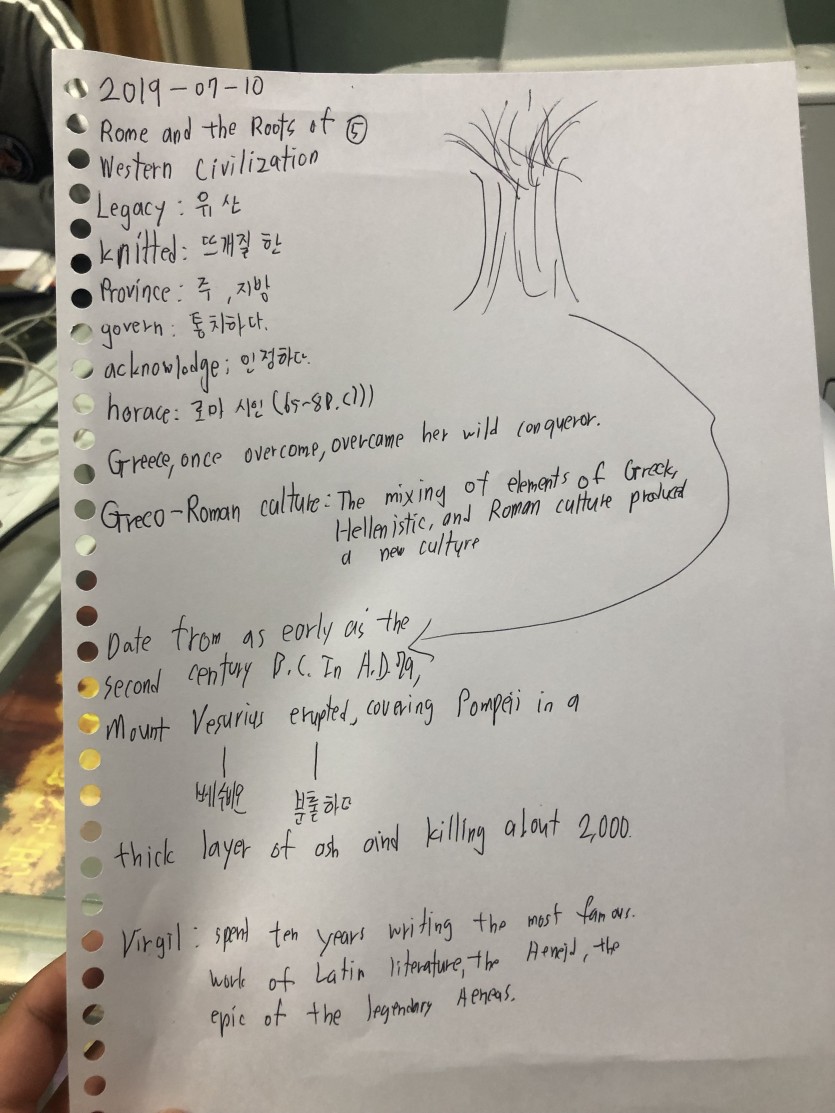 2019-07-10
Rome and the Roots of ⑤
Western Civilization
Legacy : 유산
knitted : 뜨개질 한
Province : 주, 지방
govern : 통치하다.
acknowlodge ; 인정하다.
horace : 로마 시인 (65~8B.C)))
Greece, once overcome, overcame her wild conqueror.
Greco-Roman culture : The mixing of elements of Greek,
Hellenistic, and Roman culture produced
a new culture
Date from as early as the
second century B.C. In A.D. 79,
Mount Vesurius erupted, covering Pompeii in a
베쉬비오 분출하다
thick layer of ash aind killing about 2,000.
Virgil : spent ten years writing the most famous.
work of Latin literature, the Aeneid, the
epic of the legendary Aeneas.